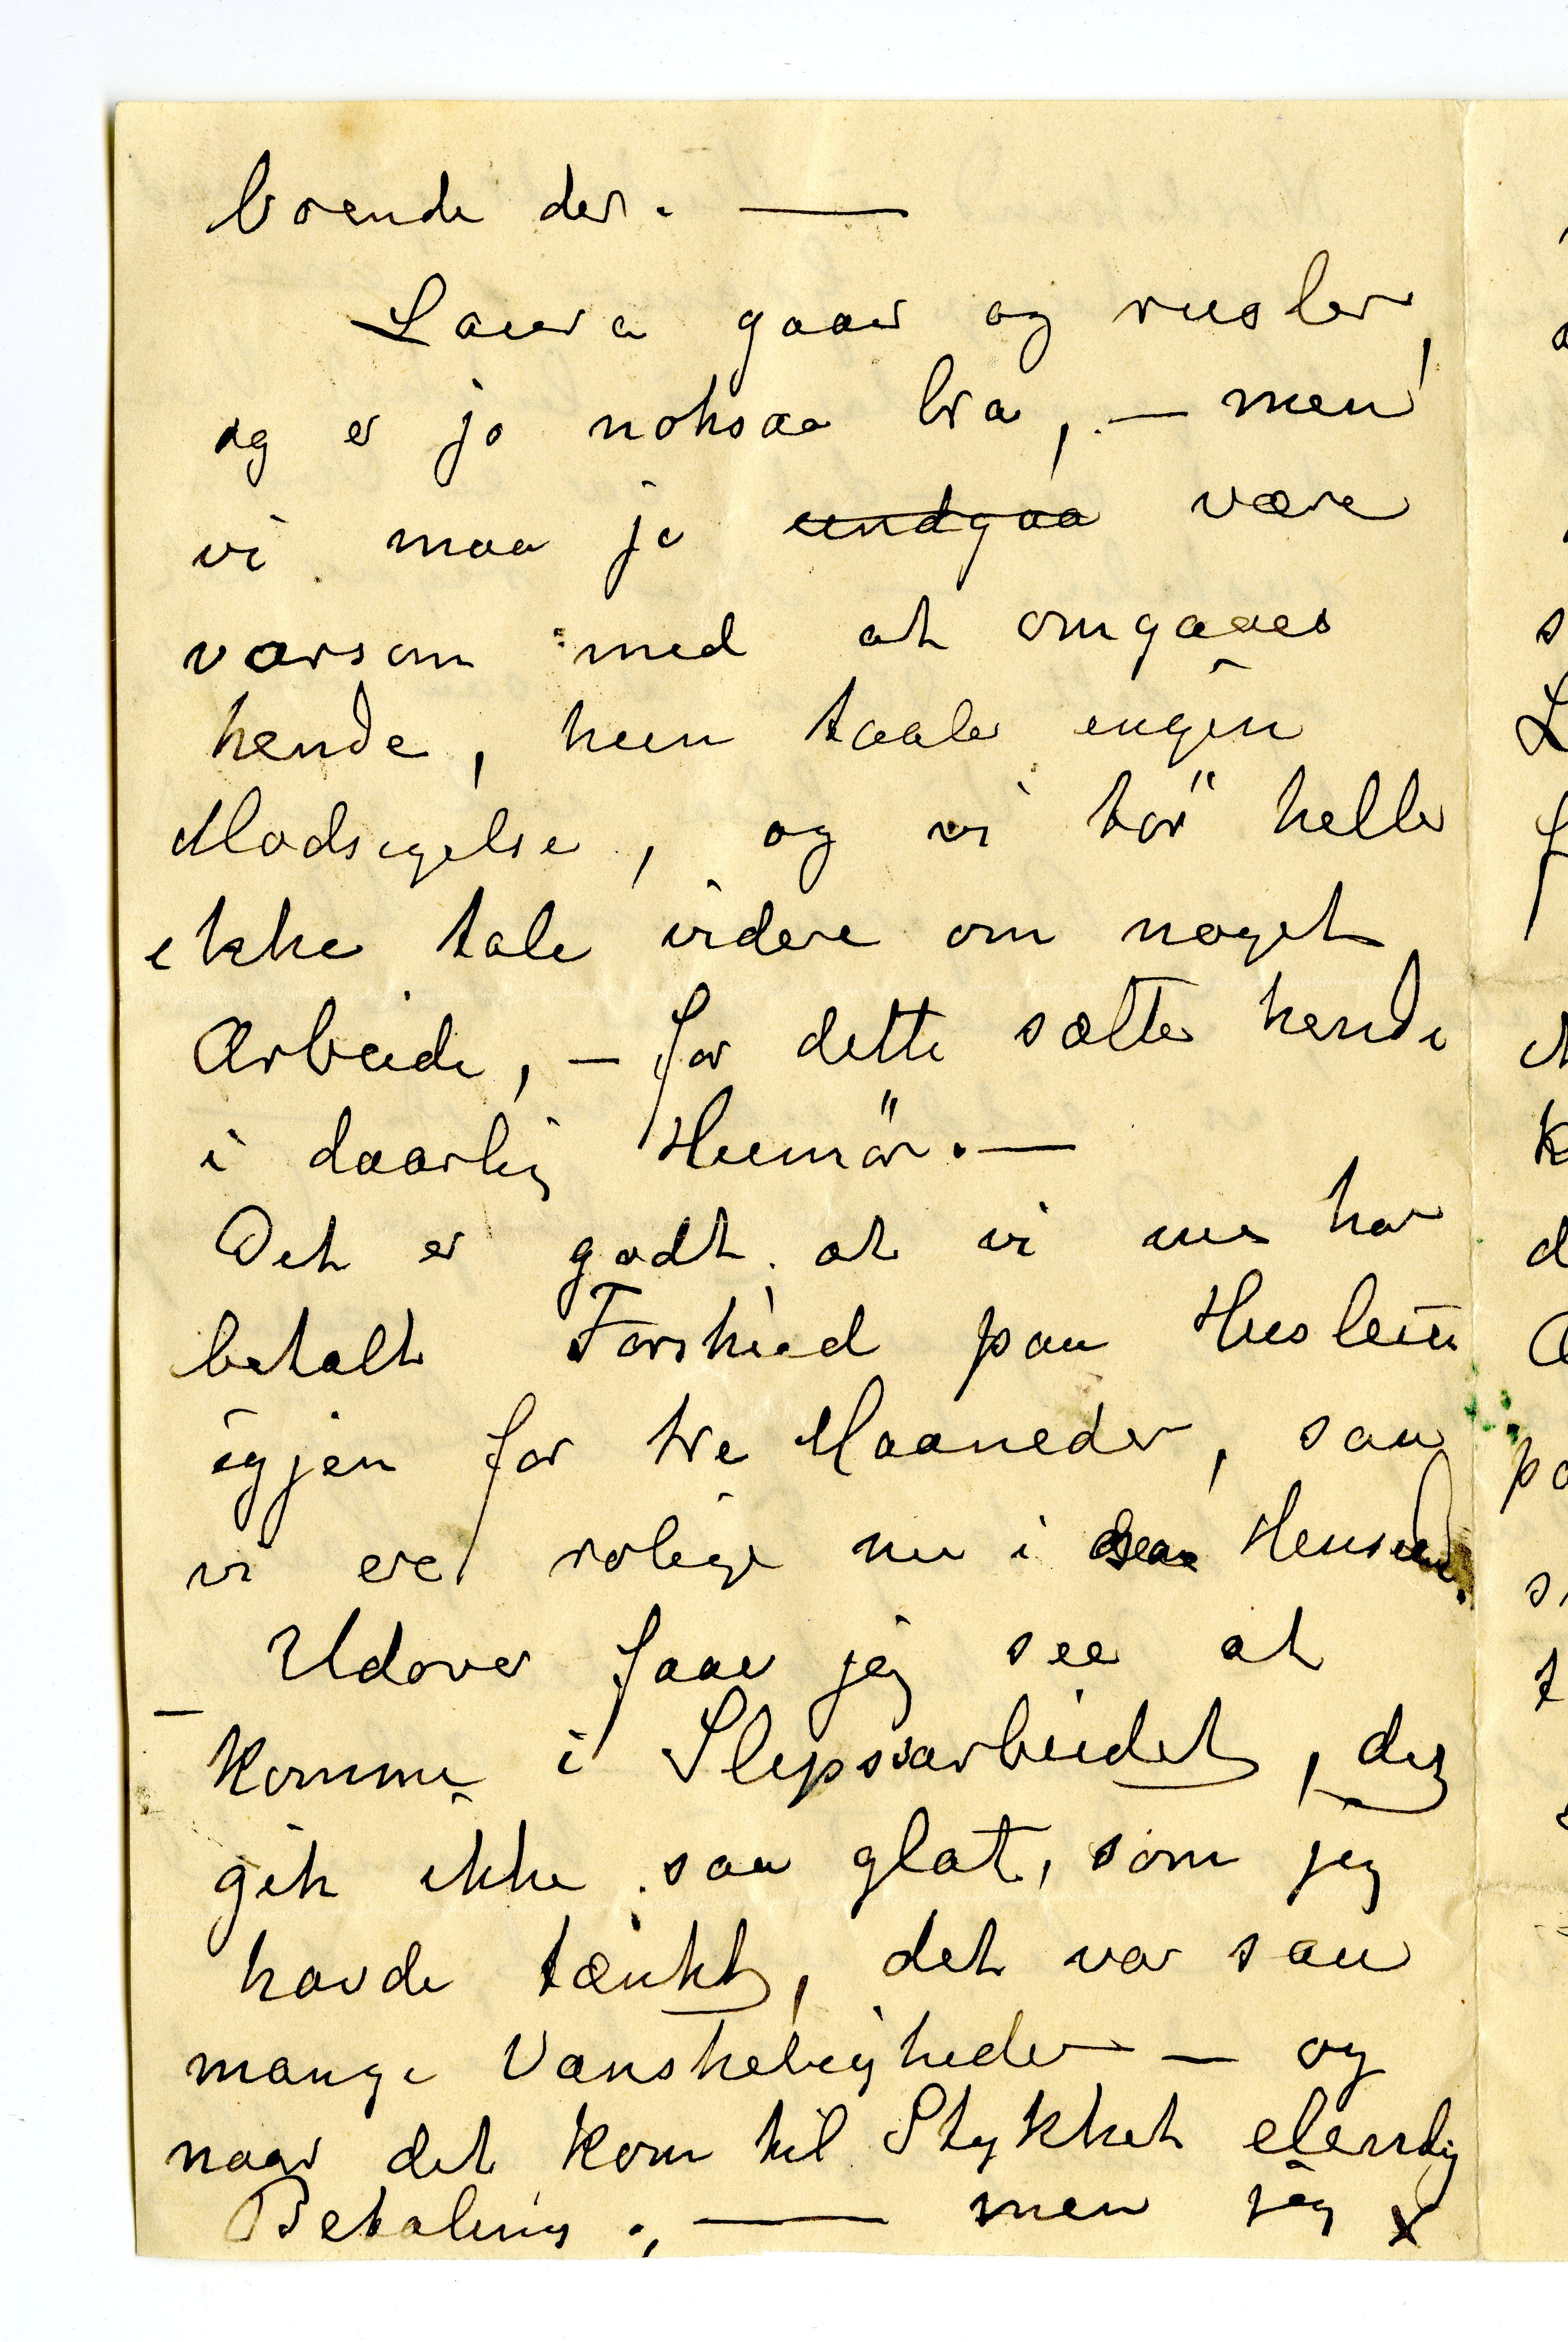 boende der. —
Laura gaar og rusler,
og er jo noksaa bra, — men
vi maa jo undgaa være
varsom med at omgaaes
hende, hun taaler ingen
Modsigelse, og vi tör heller
ikke tale videre om noget
Arbeide, — for dette sætter hende
i daarlig Humör. —
Det er godt at vi nu har
betalt Forskud paa Husleien
igjen for tre Maaneder, saa
vi ere rolige nu i den Henseende.
Udover faar jeg see at
— komme i Slipsarbeidet, deg
gik ikke saa glat, som jeg
havde tænkt, det var saa
mange Vanskeligheder — og
naar det kom til Stykket elendig
Betaling., — men jeg x